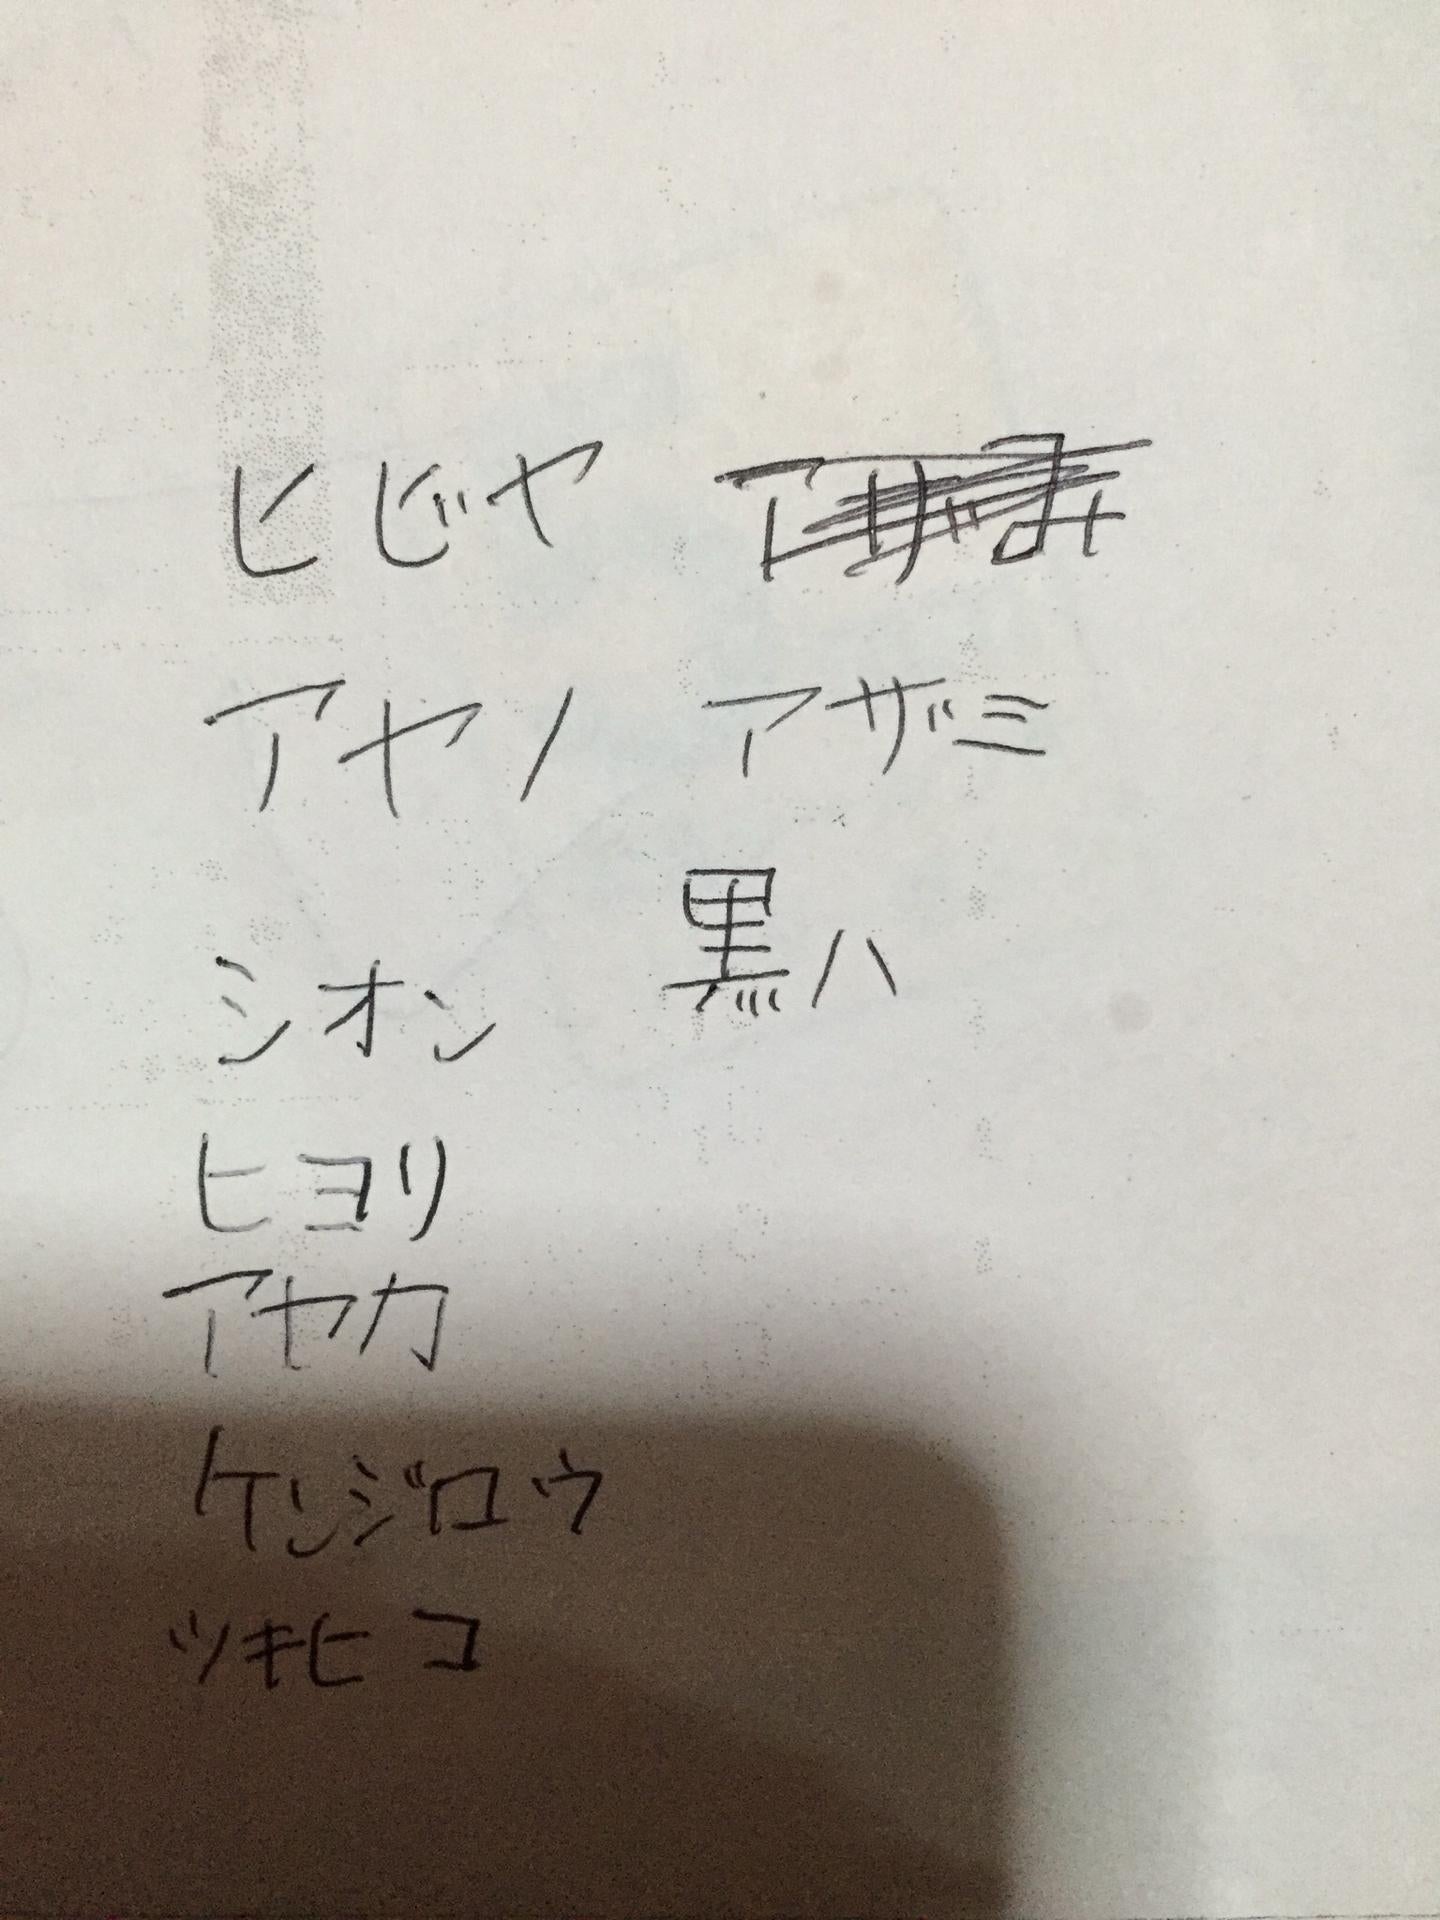 ヒビヤ
アヤノ アザミ
黒ハ
シオン
ヒヨリ
アヤカ
ケンジロウ
ツキヒコ